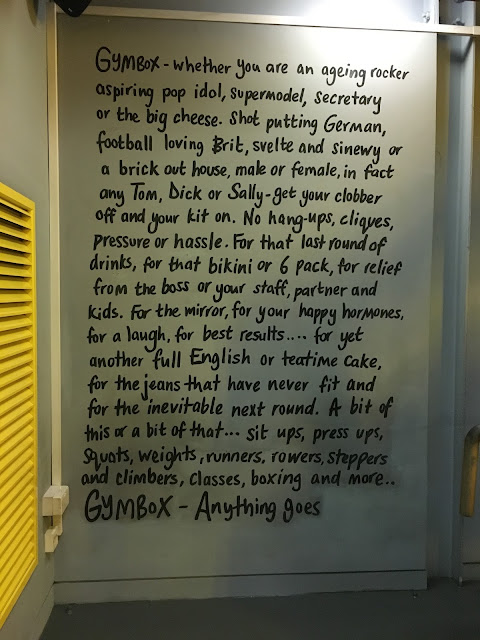 GYMBOX - whether you are an ageing rocker
aspiring pop idol, supermodel, secretary
or the big cheese. Shot putting German,
football loving Brit, svelte and sinewy or
a brick out house, male or female, in fact
any Tom, Dick or Sally - get your clobber
off and your kit on. No hang-ups, cliques,
pressure or hassle. For that last round of
drinks, for that bikini or 6 pack, for relief
from the boss or your staff, partner and
kids. For the mirror, for your happy hormones,
for a laugh, for best results.... for yet
another full English or teatime cake,
for the jeans that have never fit and
for the inevitable next round. A bit of
this or a bit of that... sit ups, press ups,
squats, weights, runners, rowers, steppers
and climbers, classes, boxing and more..
GYMBOX - Anything goes